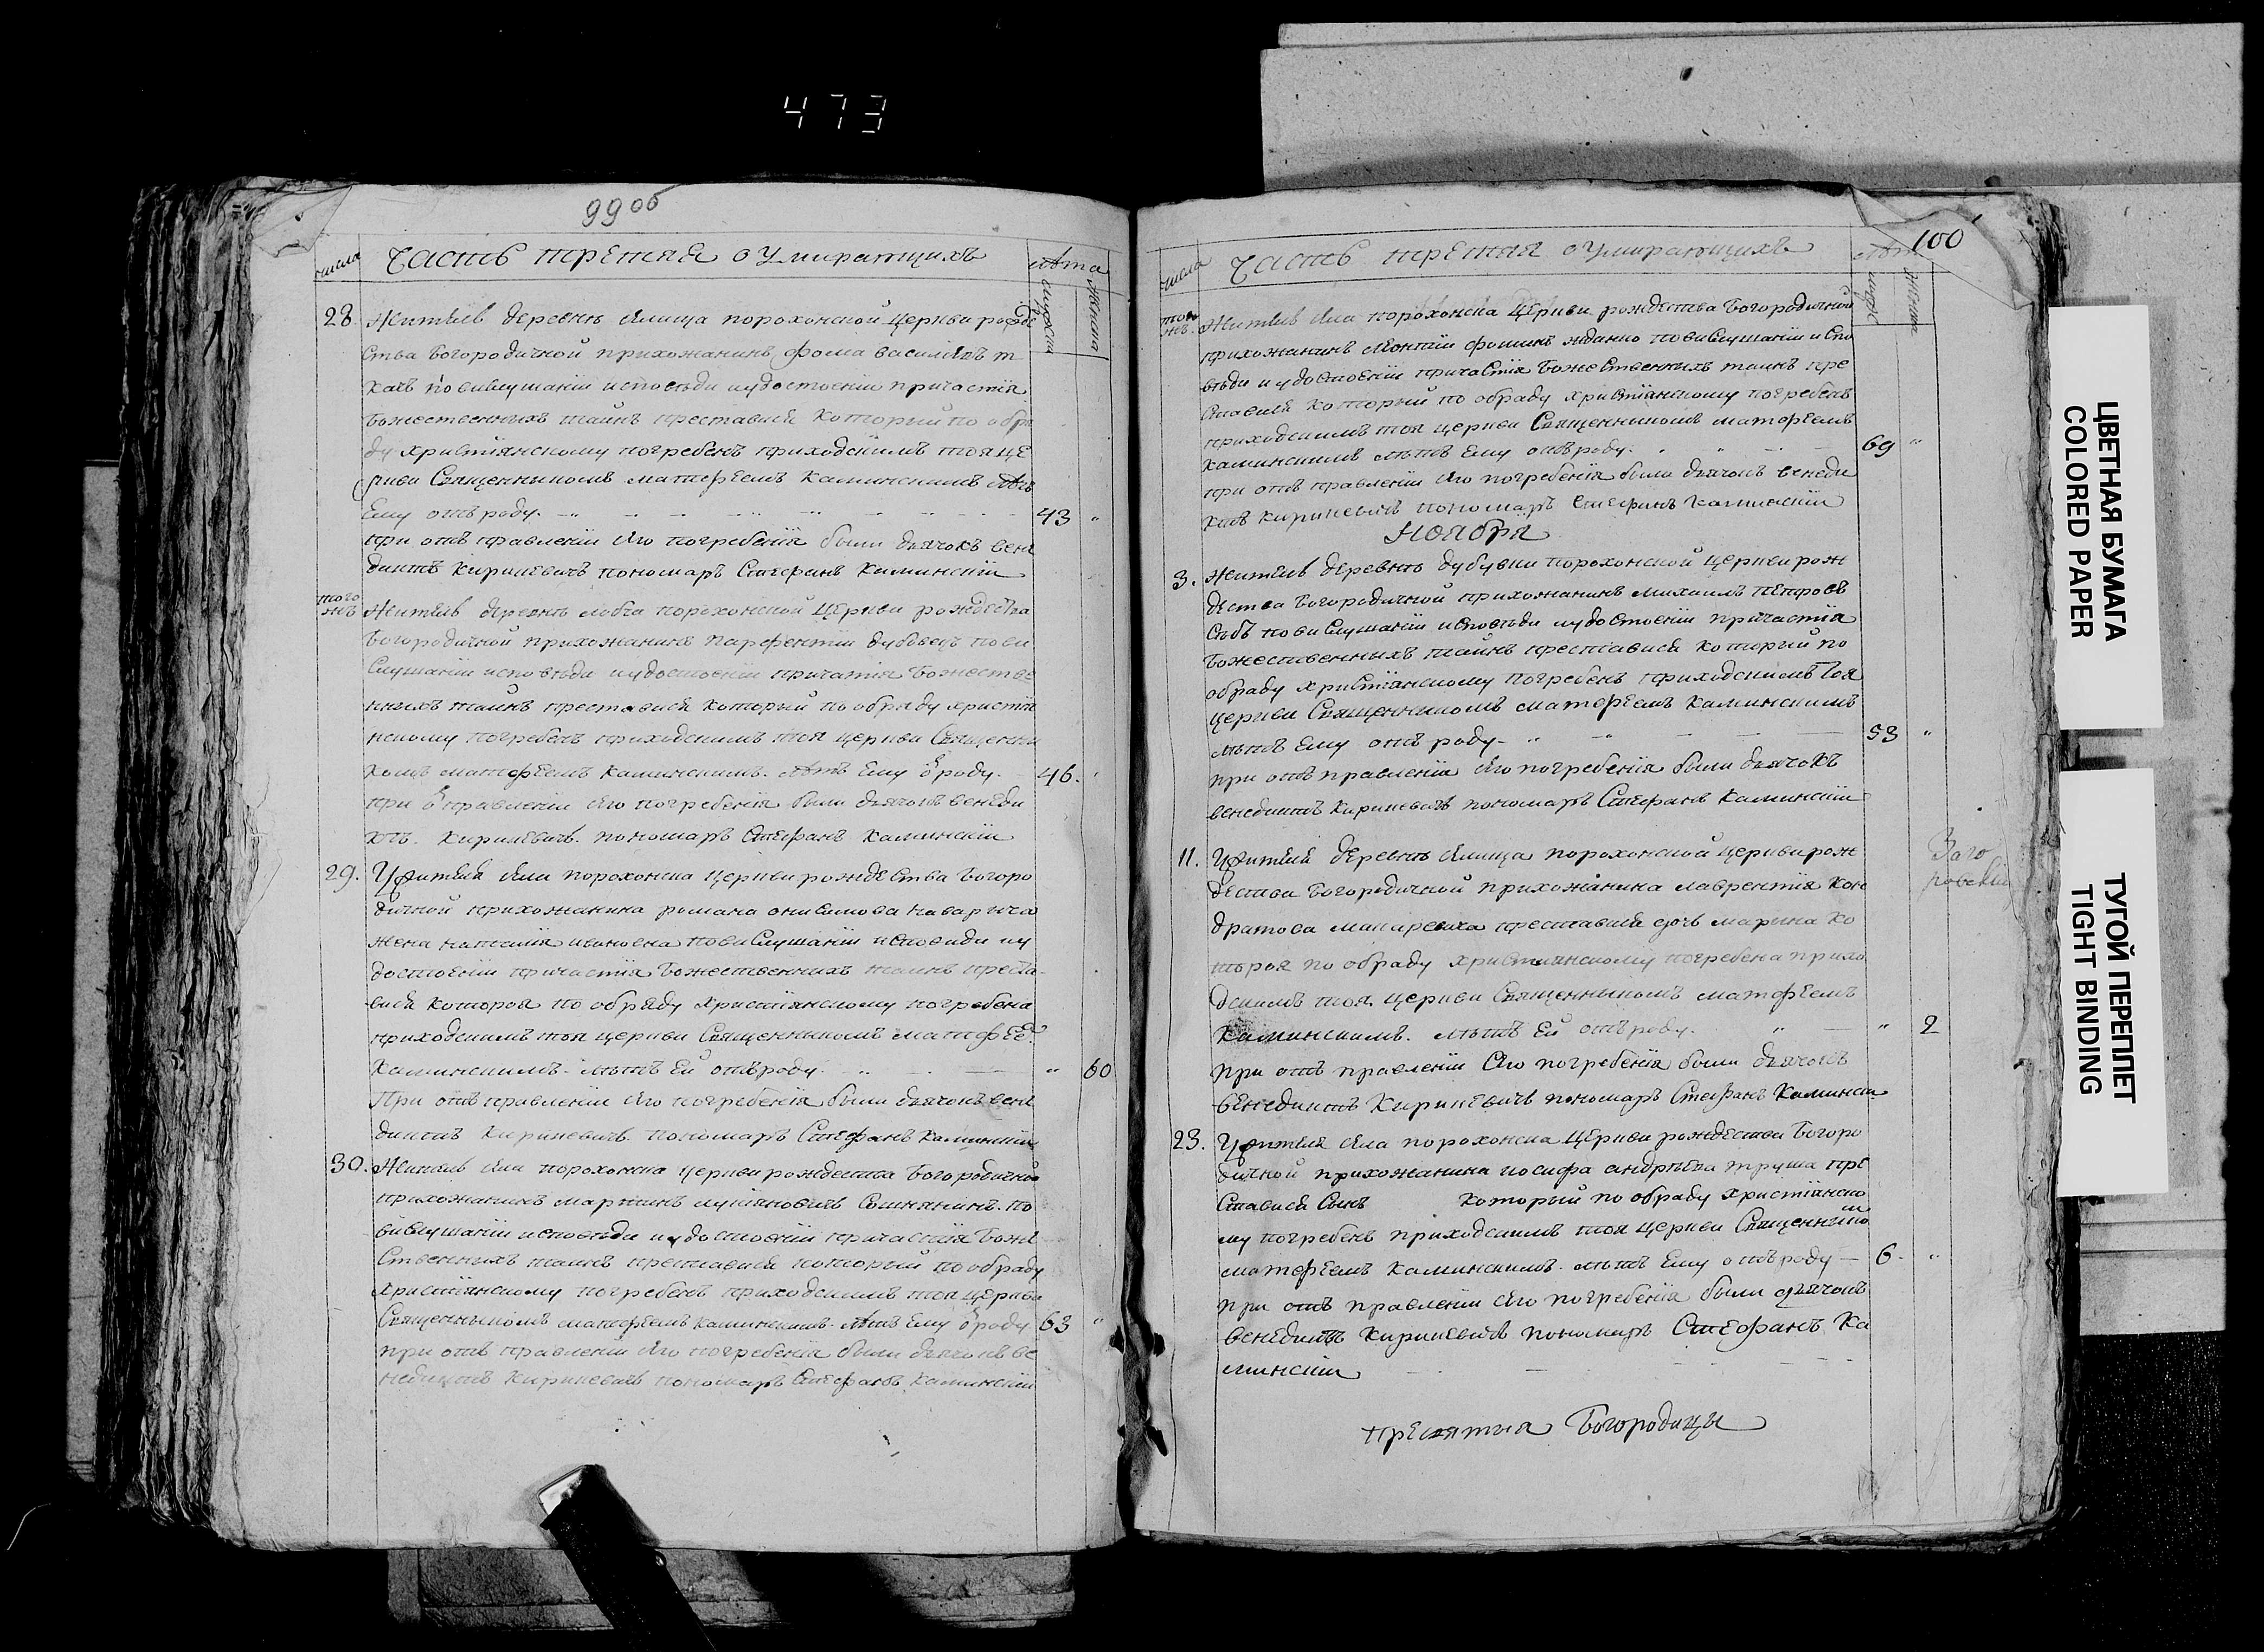 473
99 об
числа Часть третяя о умирающихъ лѣта
мужска женска
28 Житель деревнѣ Ялища порохонской церкви рожде
ства Богородичной прихожанинъ фома василіевъ т
качъ по вислушаніи исповѣди и удостоеніи причастія
Божественныхъ таинъ преставися который по обря
ду христіянскому погребенъ приходскимъ тоя це
ркви Священныкомъ матфеемъ Каминскимъ лѣтъ
Ему отъ роду 43 "
при отъ правленіи его погребенія были дьячокъ вене
диктъ Кириневичъ пономаръ Стефанъ Каминскіи
того жъ Житель деревнѣ порохонской церкви рождества
Богородичной прихожанинъ парфентіи дубовецъ по ви
слушаніи исповѣди и удостоеніи причатія Божестве
нныхъ таинъ преставися который по обряду христія
нскому погребенъ приходскимъ тоя церкви Священни
комъ матфеемъ Каминскимъ. лѣтъ Ему ѿ роду. 46. "
при ѿ правленіи его погребенія были дьячокъ венеди
ктъ. Кириневичъ. пономаръ Стефанъ Каминскіи
29. Жителя села порохонска церкви рождества Богоро
дичной прихожанина романа онисимова
жена наталия ивановна по вислушаніи исповиди и у
достоеніи причастія Божественныхъ таинъ преста
вися которая по обряду христіянскому погребена
приходскимъ тоя церкви Священныкомъ матфее
Каминскимъ. лѣтъ Ей отъ роду " 60
При отъ правленіи его погребенія были дьячокъ вене
диктъ Кириневичъ. пономаръ Стефанъ Каминскіи
30. Житель села порохонска церкви рождества Богородичной
прихожанинъ мартинъ по
вислушаніи исповѣди и удостоеніи причастія Боже
ственныхъ таинъ преставися который по обряду
христіянскому погребенъ приходскимъ тоя церкви
Священныкомъ матфеемъ Каминскимъ. лѣтъ Ему ѿ роду 63 "
при отъ правленіи его погребенія были дьячокъ ве
недиктъ Кириневичъ пономаръ Стефанъ Каминскіи
100
числа Часть третяя о умирающихъ лѣт
мужс женска
того жъ. Житель села порохонска церкви рождества Богородичной
прихожанинъ фоминъ жданко по вислушаніи и спо
вѣди и удостоеніи причастія Божественныхъ таинъ пре
ставися который по обряду христіянскому погребенъ
приходскимъ тоя церкви Священныкомъ матфеемъ
Каминскимъ лѣтъ Ему отъ роду. 69 "
при отъ правленіи его погребенія были дьячокъ венеди
ктъ Кириневичъ пономаръ Стефанъ Каминскіи
Ноября
3. Житель деревнѣ дубувки порохонской церкви рож
дества Богородичной прихожанинъ михаилъ
по вислушаніи исповѣди и удостоеніи причастія
Божественныхъ таинъ преставися который по
обряду христіянскому погребенъ приходскимъ тоя
церкви Священныкомъ матфеемъ Каминскимъ
лѣтъ Ему отъ роду 53 "
при отъ правленіи его погребенія были дьячокъ
венедиктъ Кириневичъ пономаръ Стефанъ Каминскіи
11. Жителя деревнѣ Ялища порохонской церкви рож
дества Богородичной прихожанина лаврентія Кон
дратова преставися дочь марина ко
торая по обряду христіянскому погребена прихо
дскимъ тоя церкви Священныкомъ матфеемъ
Каминскимъ. лѣтъ Ей отъ роду. " 2
при отъ правленіи Его погребенія были дьячокъ
венедиктъ Кириневичъ пономаръ Стефанъ Каминскі
23. Жителя села порохонска церкви рождества Богоро
дичной прихожанина иосифа андрѣева труша пре
ставися Сынъ который по обряду христіянско
му погребенъ приходскимъ тоя церкви Священныко
матфеемъ Каминскимъ. лѣтъ Ему отъ роду 6. "
при отъ правленіи его погребенія были дьячокъ
венедиктъ Кириневичъ пономаръ Стефанъ Ка
минскіи
пресвятыя Богородицы
ЦВЕТНАЯ БУМАГА
COLORED PAPER
ТУГОЙ ПЕРЕПЛЕТ
TIGHT BINDING